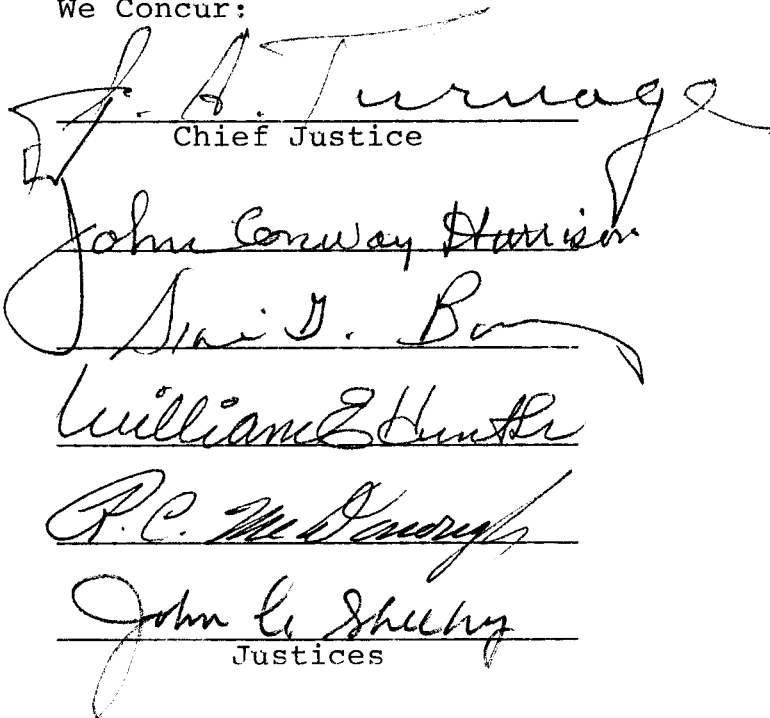 We Concur:
J. A. Turnage
Chief Justice
John Conway Harrison
William E Hunter
R. C. McDonough
John C. Sheehy
Justices